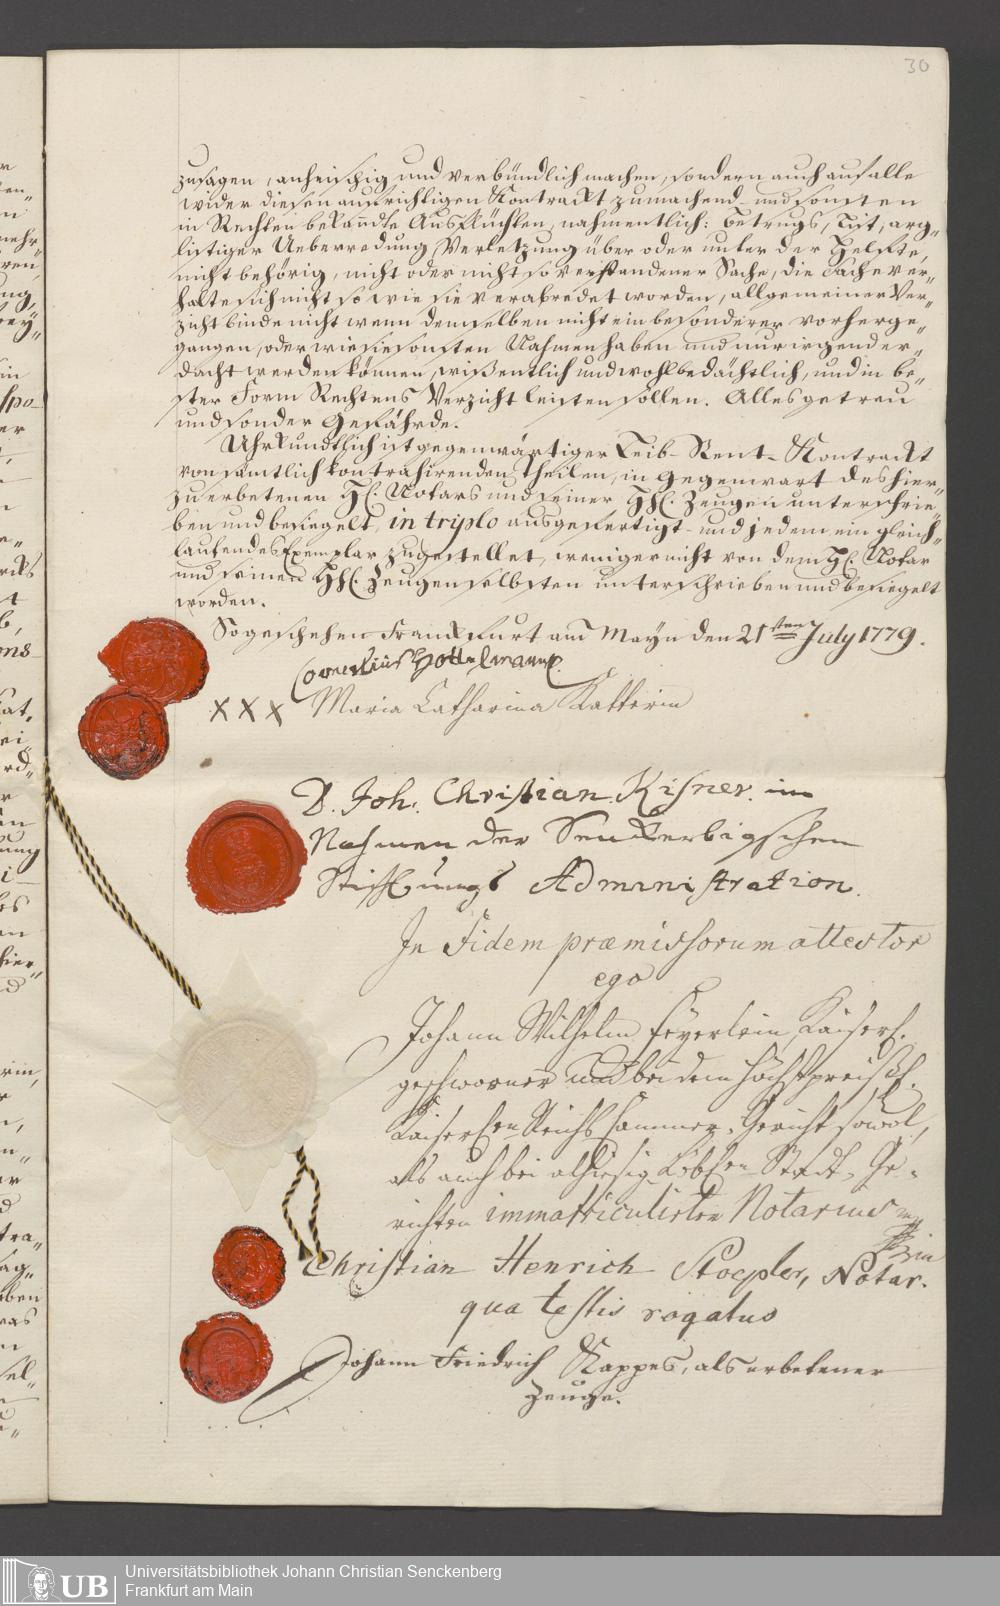 30
zusagen, anheischig und verbündlich machen, sondern auch auf alle
wider diesen aufrichtigen Kontrackt zumachend- und sonsten
in Rechten bekandte Ausflüchten, nahmentlich: Betrugs, List, arg„
listiger Ueberredung, Verletzung über oder unter der Helfte,
nicht behörig, nicht oder nicht so verstandener Sache, die Sache ver„
halte sich nicht so wie sie verabredet worden, allgemeiner Ver„
zicht binde nicht wenn demselben nicht ein besonderer vorherge„
gangen, oder wie sie sonsten Nahmen haben und nur irgend er„
dacht werden können, wißentlich und wohlbedächtlich, und in be„
ster Form Rechtens Verzicht leisten sollen. Alles getreu
und sonder Gefährde.
Uhrkundtlich ist gegenwärtiger Leib-Rent-Kontrackt
von sämtlich kontrahirenden Theilen, in Gegenwart des hier„
zu erbetenen H. Notars und seiner HH. Zeugen unterschrie„
ben und besiegelt, in triplo ausgefertigt- und jedem ein gleich„
laufendes Exemplar zugestellet, weniger nicht von dem H. Notar
und seinen HH. Zeugen selbsten unterschrieben und besiegelt
worden.
So geschehen Franckfurt am Mayn den 21sten July 1779.
Cornelius
XXX Maria Catharina
D. Joh. Christian Kisner. im
Nahmen der Senckerbigschen
Stifftungs Administration.
In Fidem præmissorum attestor
ego
Johann Wilhelm Feyerlein, Kaiserl.
geschworner und bei dem Höchstpreißl.
Kaiserlen Reichs Cammer-Gericht sowol,
als auch bei alhiesig Löblen Stadt-Ge-
richten immatriculirter Notarius
Christian Henrich Stoepler, Notar.
qua testis rogatus
Johann Friedrich Kappes, als erbetener
Zeuge.
Universitätsbibliothek Johann Christian Senckenberg
Frankfurt am Main
UB